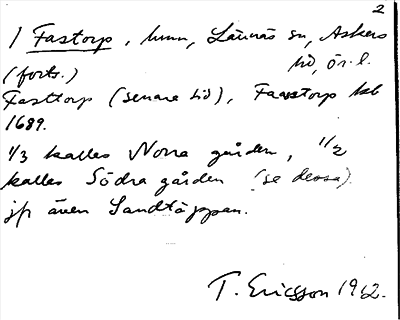 2
1 Fastorp, hmn, Lännäs sn, Askers
(forts.) hd, ör. l.
Fasttorp (senare tid), Faastorp kb
1689.
1/3 kalles Norra gården, 1/2
kalles Södra gården (se dessa).
jfr även Sandtäppan.
T. Ericsson 1962.